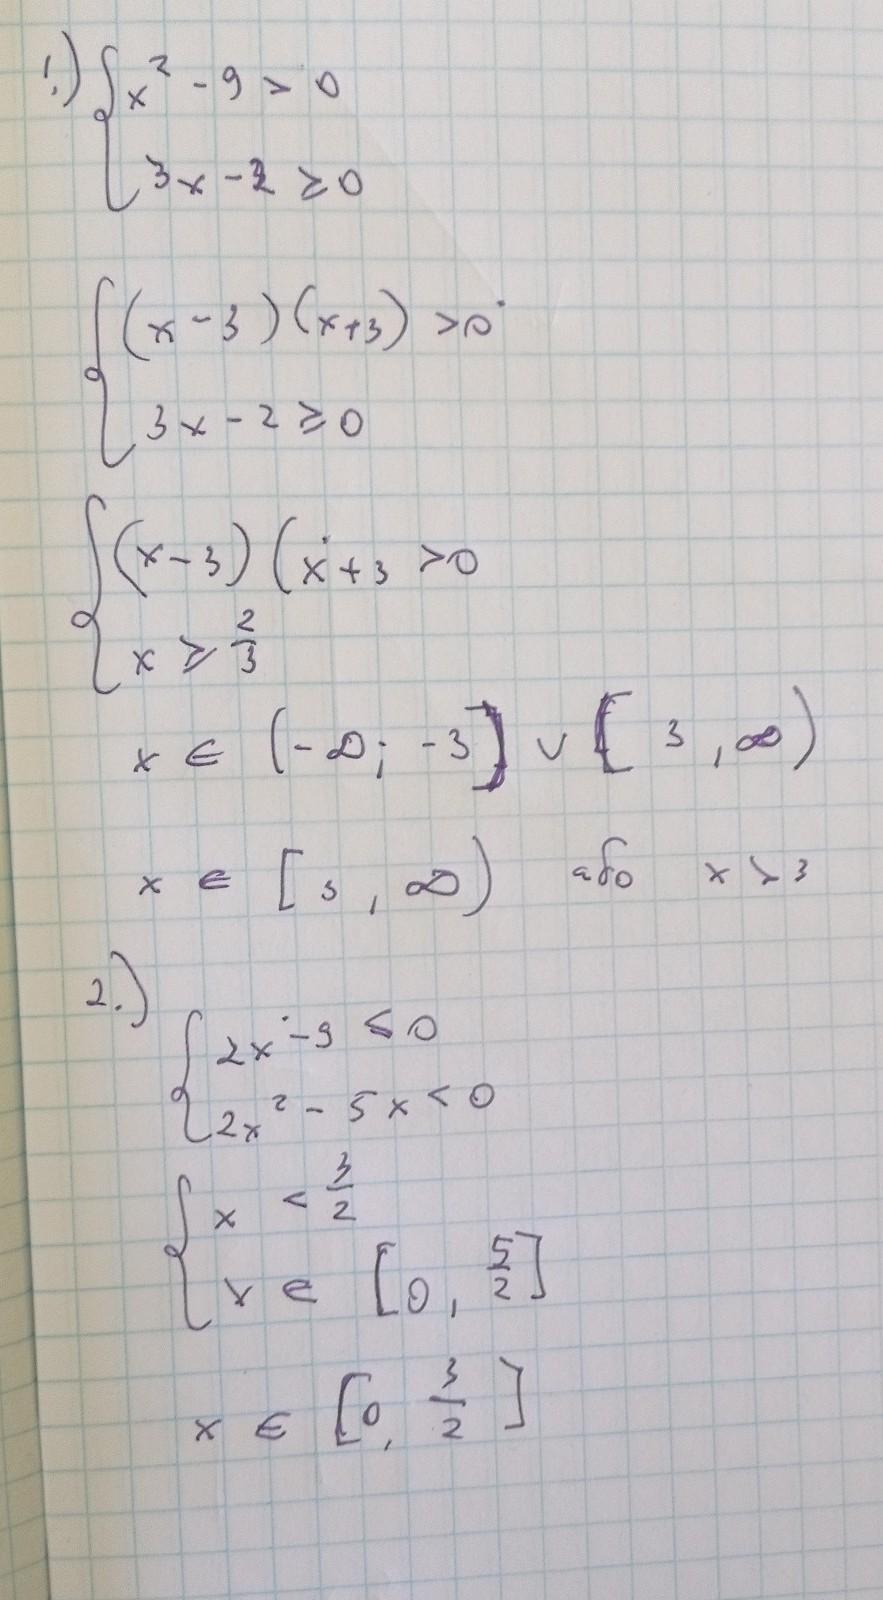 1.) { x² - 9 > 0
3x - 2 ≥ 0
{ (x - 3)(x+3) > 0
3x - 2 ≥ 0
{ (x - 3)(x + 3 > 0
x ≥ 2/3
x ∈ (-∞; -3] ∪ [3, ∞)
x ∈ [3, ∞) або x > 3
2.)
{ 2x - 9 ≤ 0
2x² - 5x < 0
{ x < 3/2
x ∈ [0, 5/2]
x ∈ [0, 3/2]